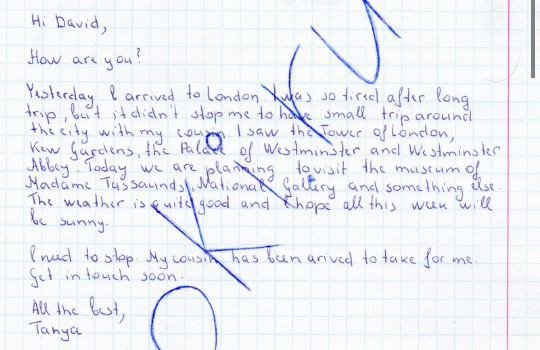 Hi David,
How are you?
Yesterday I arrived to London. I was so tired after long
trip, but it didn't stop me to have small trip around
the city with my cousin. I saw the Tower of London,
Kew Gardens, the Palace of Westminster and Westminster
Abbey. Today we are planning to visit the museum of
Madame Tussaunds, National Gallery and something else.
The weather is quite good and I hope all this week will
be sunny.
I need to stop. My cousin has been arived to take for me.
Get in touch soon.
All the best,
Tanya